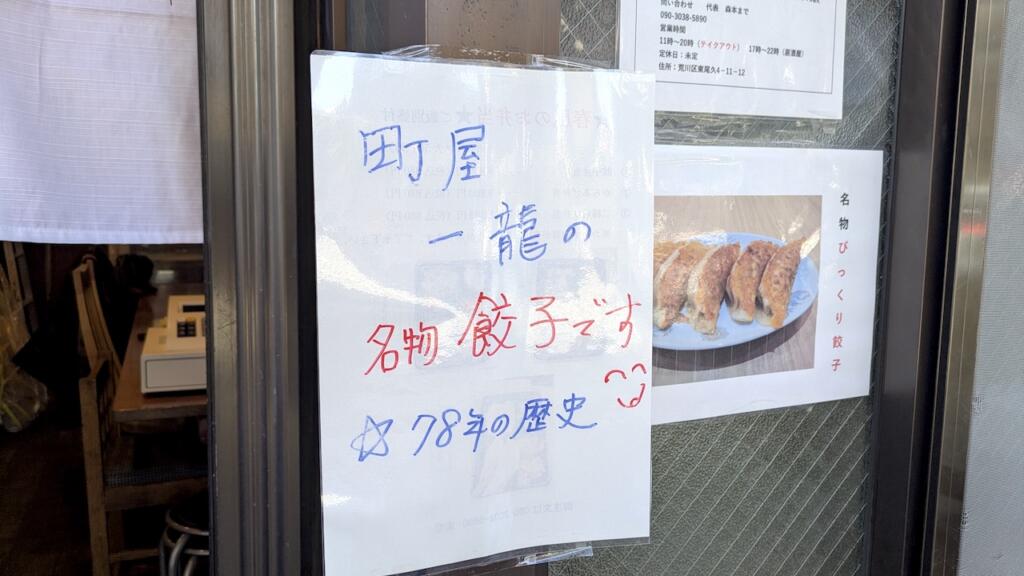 町屋
一龍の
名物餃子です
☆78年の歴史
問い合わせ 代表 森本まで
090-3038-5890
営業時間
11時～20時（テイクアウト） 17時～22時（居酒屋）
定休日：未定
住所：荒川区東尾久4－11－12
名物びっくり餃子